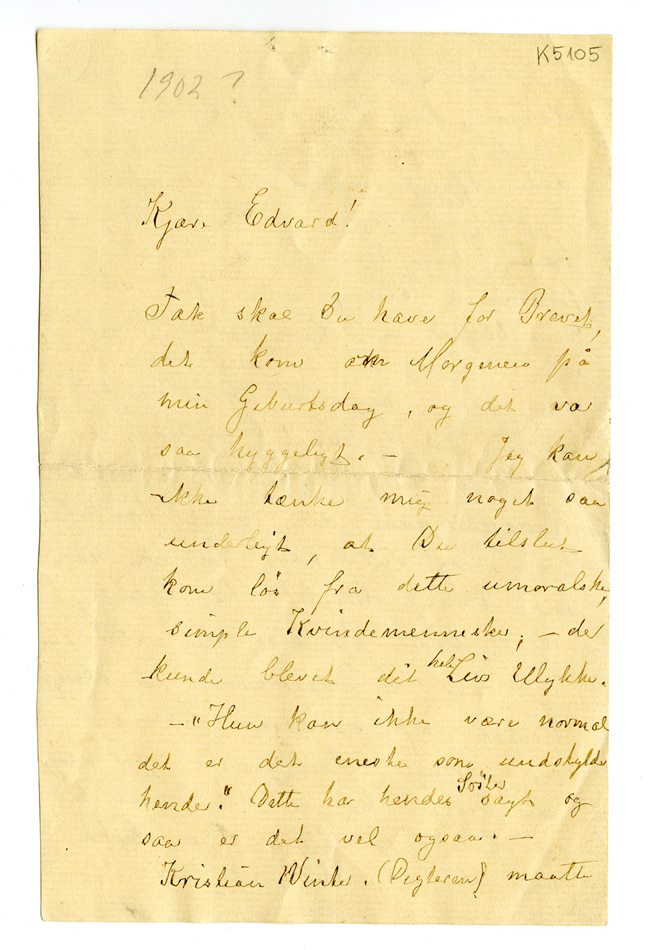 K5105
1902?
Kjære Edvard!
Tak skal Du have for Brevet,
det kom om Morgenen på
min Geburtsdag, og det var
saa hyggeligt. — Jeg kan
ikke tænke mig noget saa
underligt, at Du tilslut
kom løs fra dette umoralske,
simple Kvindemenneske, — det
kunde blevet dit hele Livs Ulykke.
— "Hun kan ikke være normal
det er det eneste som undskylder
hende." Dette har hendes Søster sagt og
saa er det vel ogsaa. —
Kristian Winter. (Digteren) maatte